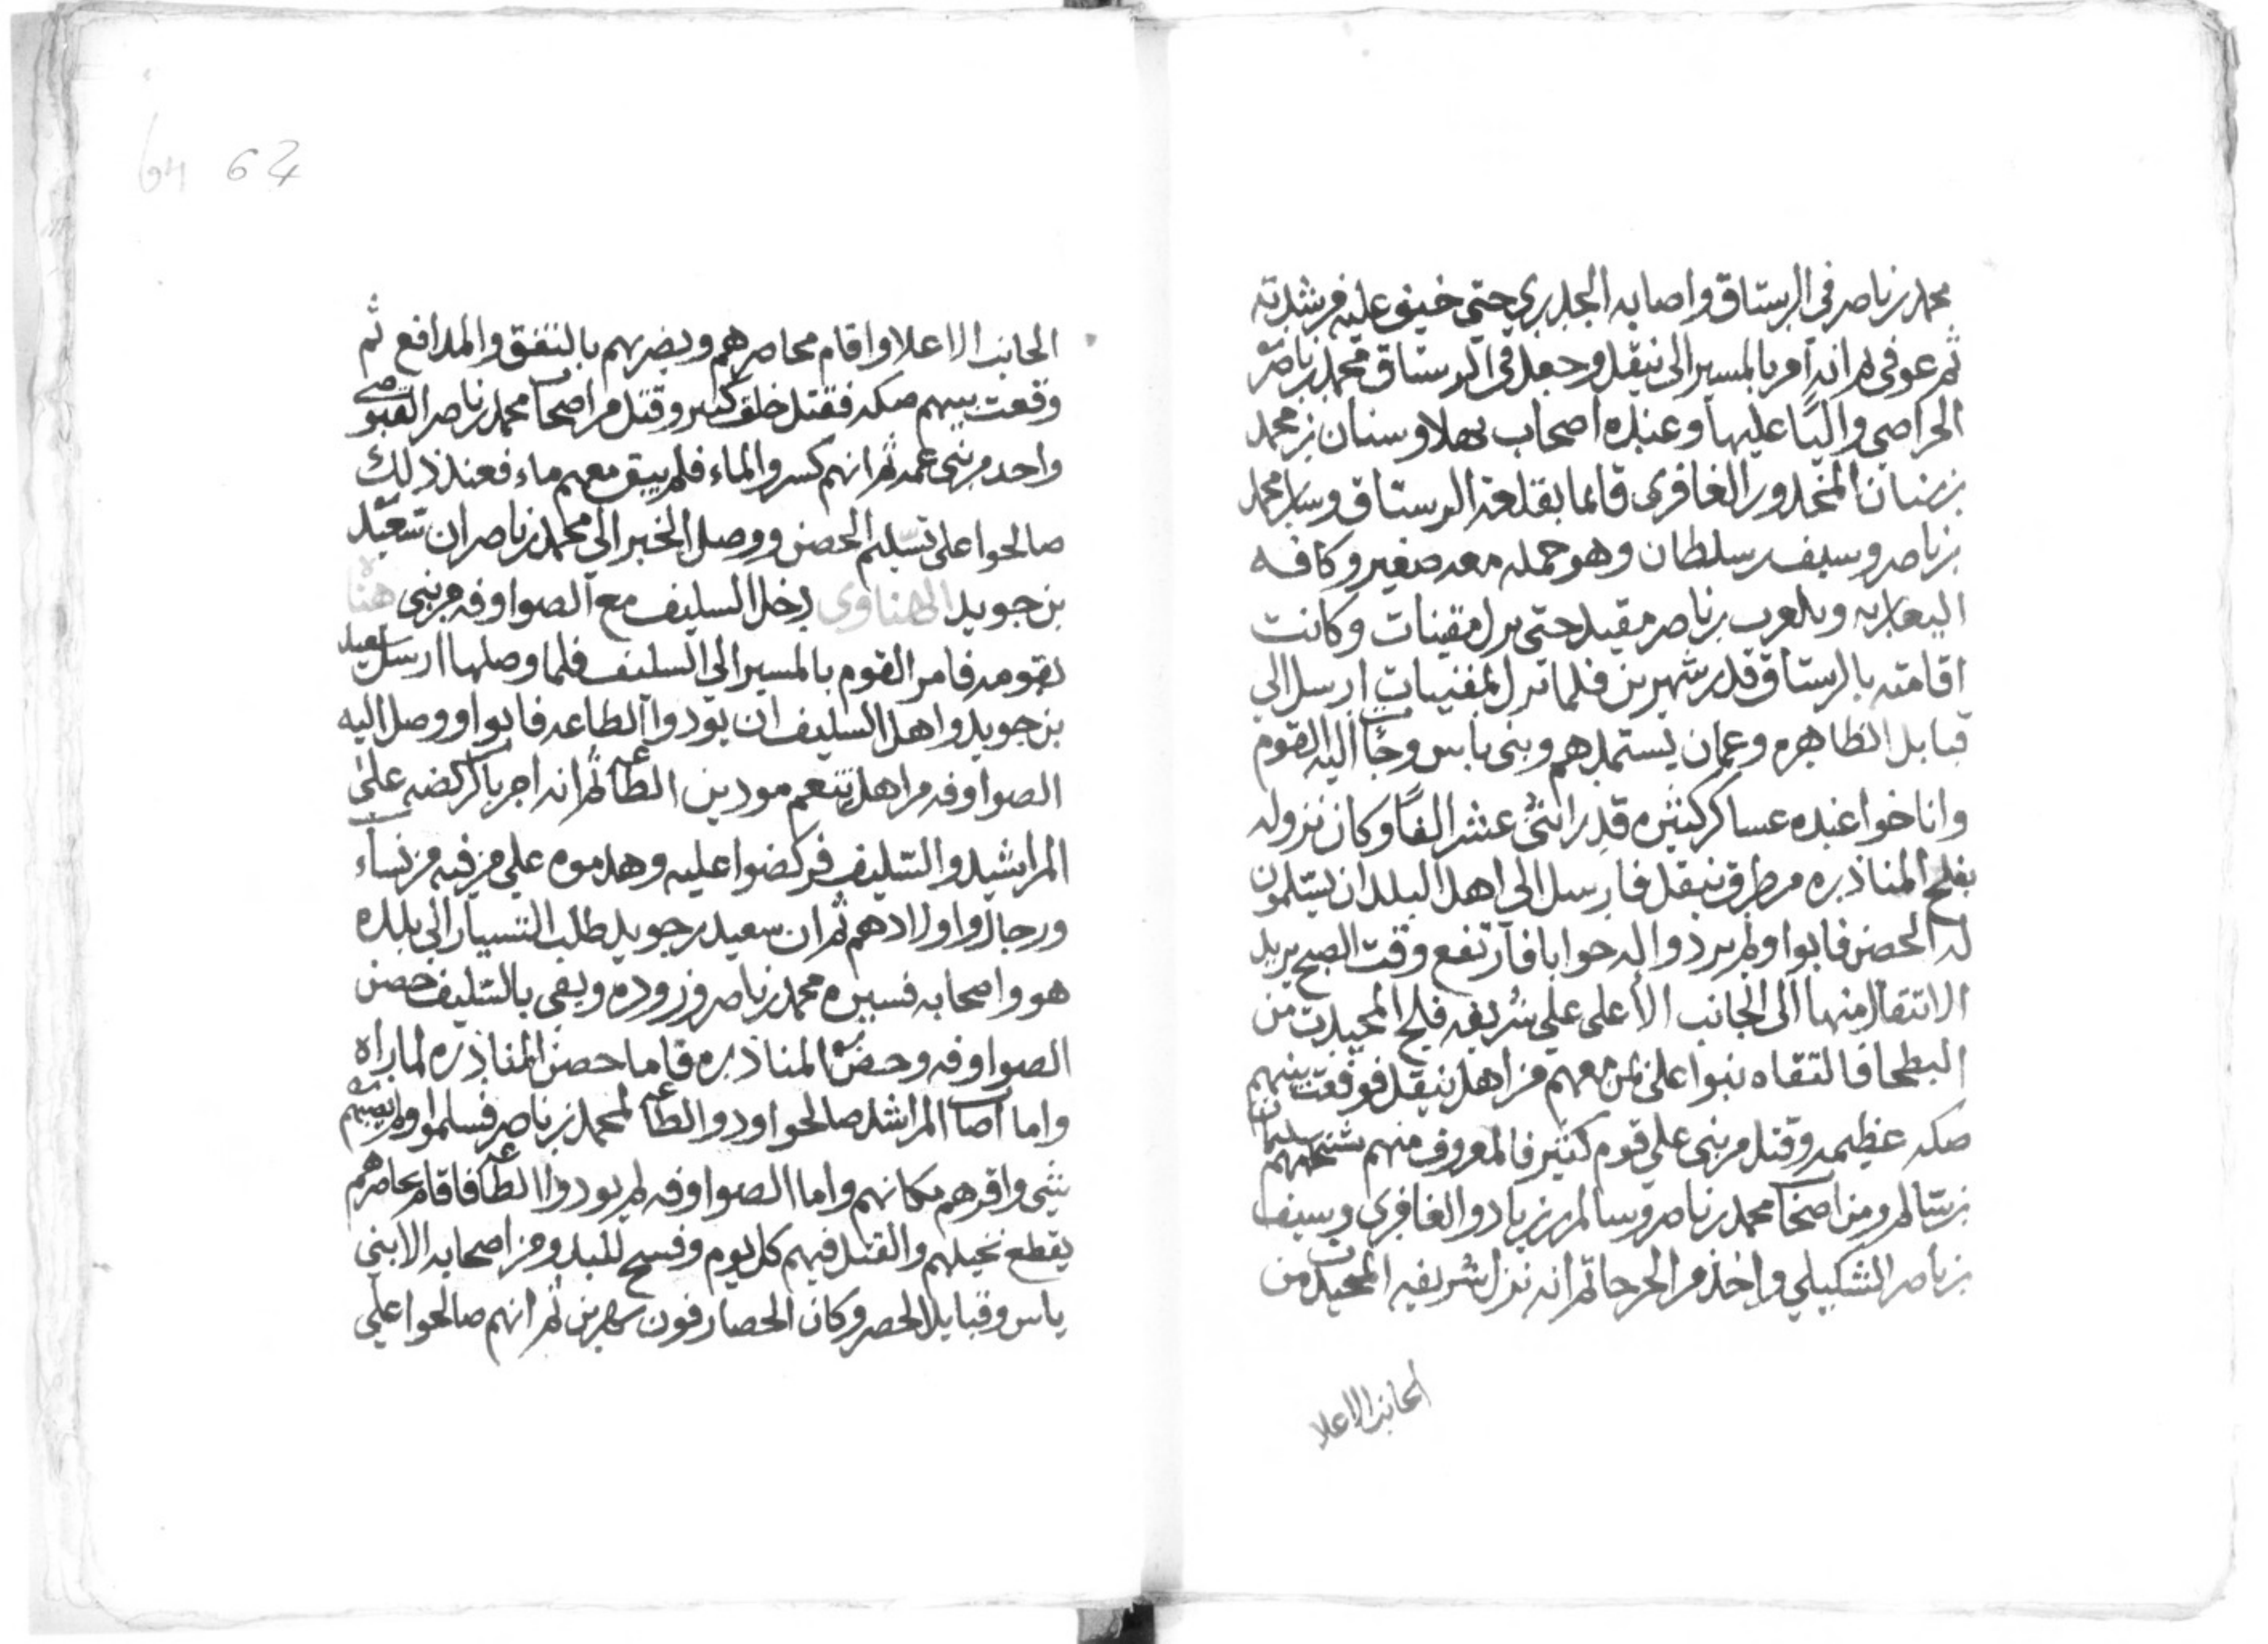 محمد بن ناصر في الرستاق واصابه الجدري حتى خيف عليه من شدته
ثم عوفي ثم انه امر بالمسير الى ينقل وجعل في الرستاق محمد بن ناصر
الحراصي واليًا عليها وعنده اصحاب بهلا وسنان بن محمد
بن سنان المحذور الغافري قائما بقلعة الرستاق وسار محمد
بن ناصر وسيف بن سلطان وهو حمله معه صغير وكافه
اليعاربه وبلعرب بن ناصر مقيد حتى نزل مقنيات وكانت
اقامته بالرستاق قدر شهرين فلما نزل المقنيات ارسل الى
قبايل الظاهره وعمان يستمدهم وبني ياس وجا اليه القوم
واناخوا عنده عساكر كثيره قدر اثنى عشر الفًا وكان نزوله
بفلج المناذره من طرق ينقل فارسل الى اهل البلد ان يسلمون
له الحصن فابوا ولم يردوا له جوابا فارتفع وقت الصبح يريد
الانتقال منها الى الجانب الأعلى على شريفه فلج المحيدث من
البطحا فالتقاه بنوا على بمن معهم من اهل ينقل فوقعت بينهم
صكه عظيمه وقتل من بني علي قوم كثير فالمعروف منهم شيخهم سليمان
بن سالم ومن اصحاب محمد بن ناصر وسالم بن زياد والغافري وسيف
بن ناصر الشكيلي واخذ من الجرحا ثم انه نزل شريفه المحيدث من
الجانب الاعلا
64 62
الجانب الاعلا واقام محاصرهم ويضربهم بالتفق والمدافع ثم
وقعت بينهم صكه فقتل خلق كثير وقتل من اصحاب محمد بن ناصر القبوصي
واحد من بني عمه ثم انهم كسروا الماء فلم يبق معهم ماء فعند ذلك
صالحوا على تسليم الحصن ووصل الخبر الى محمد بن ناصر ان سعيد
بن جويد الهناوى دخل السليف مع الصواوفه من بني هناه
بقومه فامر القوم بالمسير الى السليف فلما وصلها ارسل لسعيد
بن جويد واهل السليف ان يودوا الطاعه فابوا ووصل اليه
الصواوفه من اهل تنعم مودين الطاعه ثم انه امر بالركضه على
المراشيد والسليف فركضوا عليه وهدموه على من فيه من نساء
ورجال واولادهم ثم ان سعيد بن جويد طلب التسيار الى بلده
هو واصحابه فسيره محمد بن ناصر وزوده وبقى بالسليف حصن
الصواوفه وحصن المناذره فاما حصن المناذره لما راه
واما اصحاب المراشد صالحوا ودوا الطاعه لمحمد بن ناصر فسلموا ولم يصبهم
شي واقرهم مكانهم واما الصواوفه لم يودوا الطاعه فاقام محاصرهم
يقطع نخيلهم والقتل فيهم كل يوم وفسح للبدو من اصحابه الا بني
ياس وقبايل الحصر وكان الحصار فون شهرين ثم انهم صالحوا على